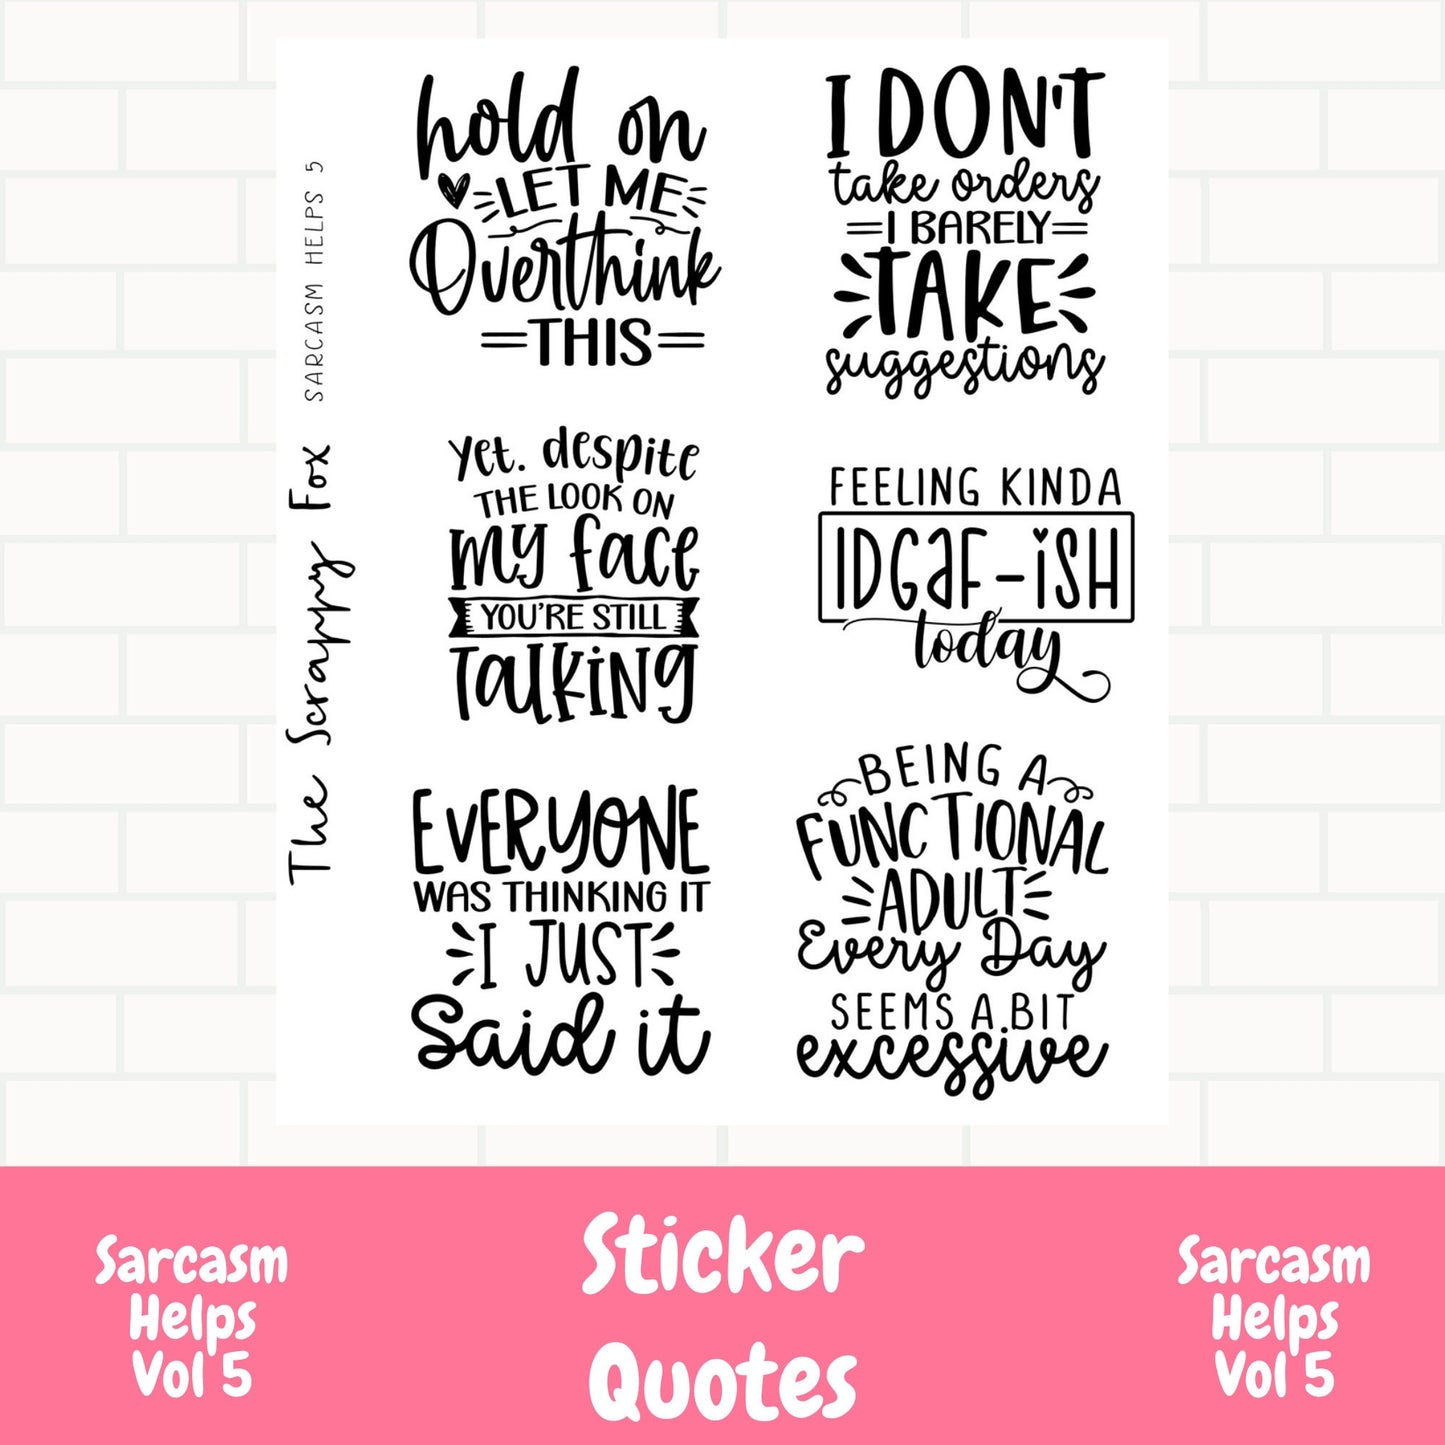 The Scrappy Fox
SARCASM HELPS 5
hold on
LET ME
Overthink
THIS
I DON'T
take orders
I BARELY
TAKE
suggestions
yet. despite
THE LOOK ON
my face
YOU'RE STILL
TALKING
FEELING KINDA
IDGAF-iSH
today
EVERYONE
WAS THINKING IT
I JUST
Said it
BEING A
FUNCTIONAL
ADULT
Every Day
SEEMS A BIT
excessive
Sarcasm
Helps
Vol 5
Sticker
Quotes
Sarcasm
Helps
Vol 5